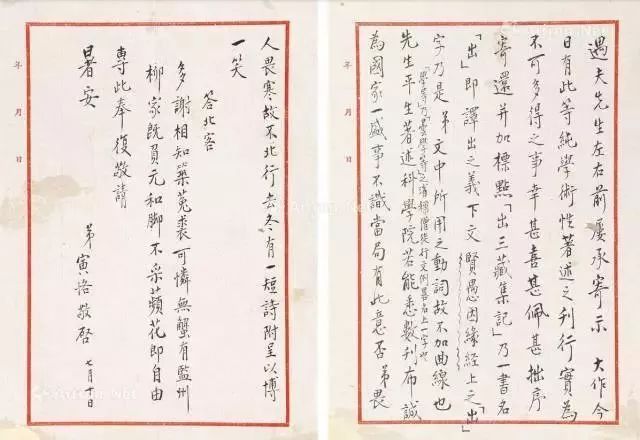 遇夫先生左右前屡承寄示 大作今
日有此等純學術性著述之刊行實為
不可多得之事幸甚喜甚佩甚拙序
寄還并加標點「出三藏集記」乃一書名
「出」即譯出之義下文賢愚因緣經上之「出」
字乃是弟文中所用之動詞故不加曲線也
「學等」乃曇學等之省稱僧徒行文例畧名上一字也
先生平生著述科學院若能悉數刊布誠
為國家一盛事不識當局有此意否弟畏
年 月 日
人畏寒故不北行去冬有一短詩附呈以博
一笑
答北客
多謝相知築菟裘可憐無蟹有監州
柳家既負元和脚不采蘋花即自由
專此奉復敬請
暑安
弟寅恪敬啓 七月 日
年 月 日